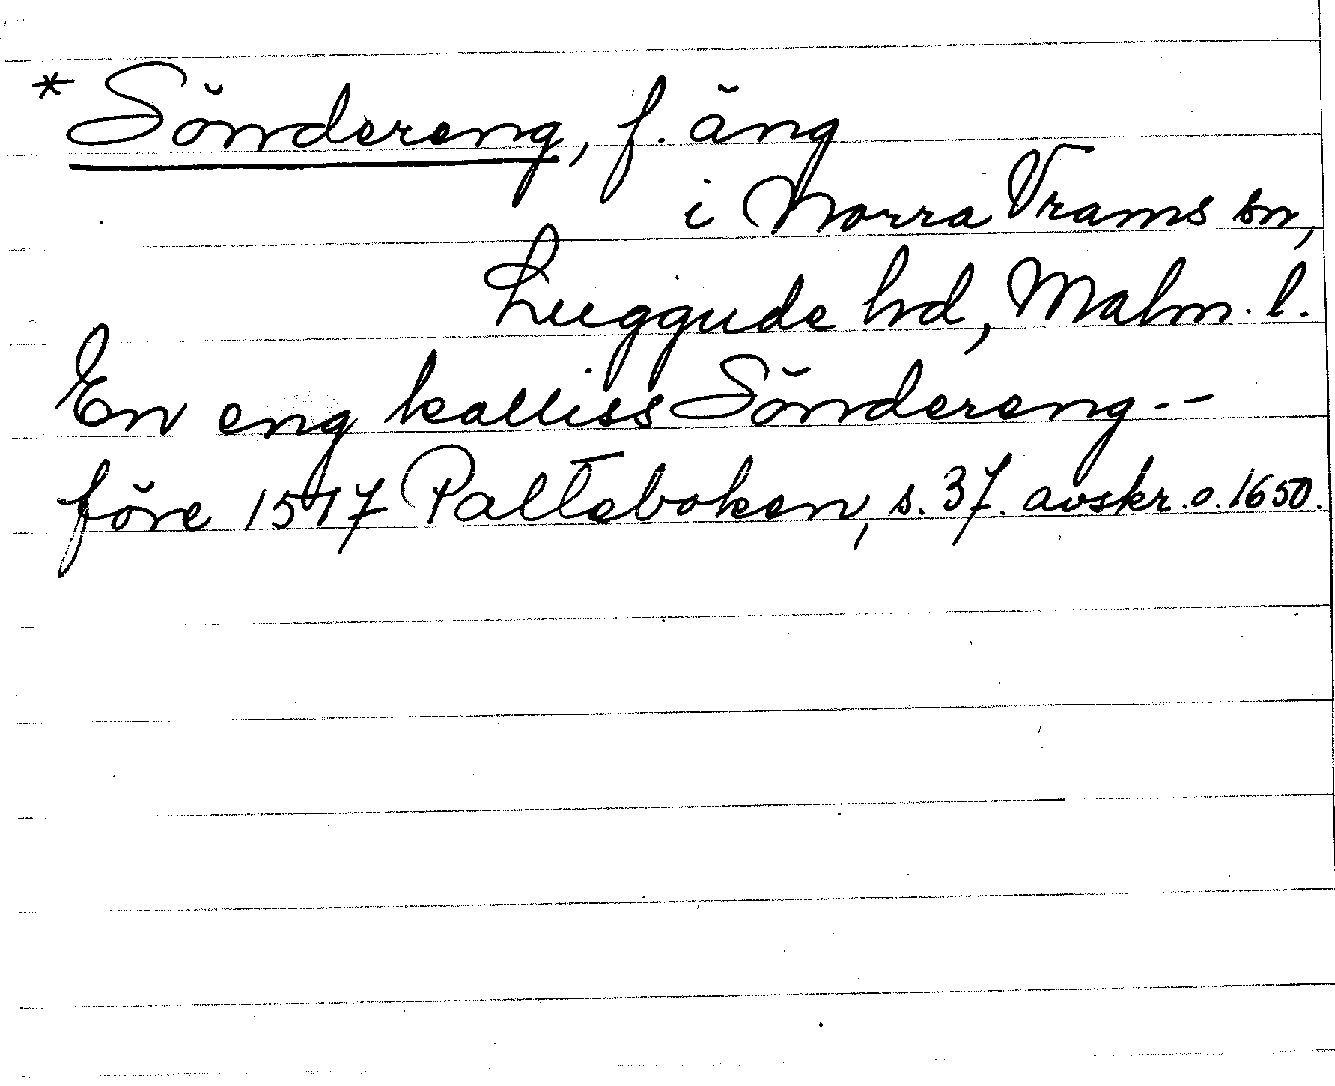 * Söndereng, f. äng
i Norra Vrams sn,
Luggude hd, Malm. l.
En eng kalliss Söndereng --
före 1517 Palteboken, s. 37. avskr. o. 1650.